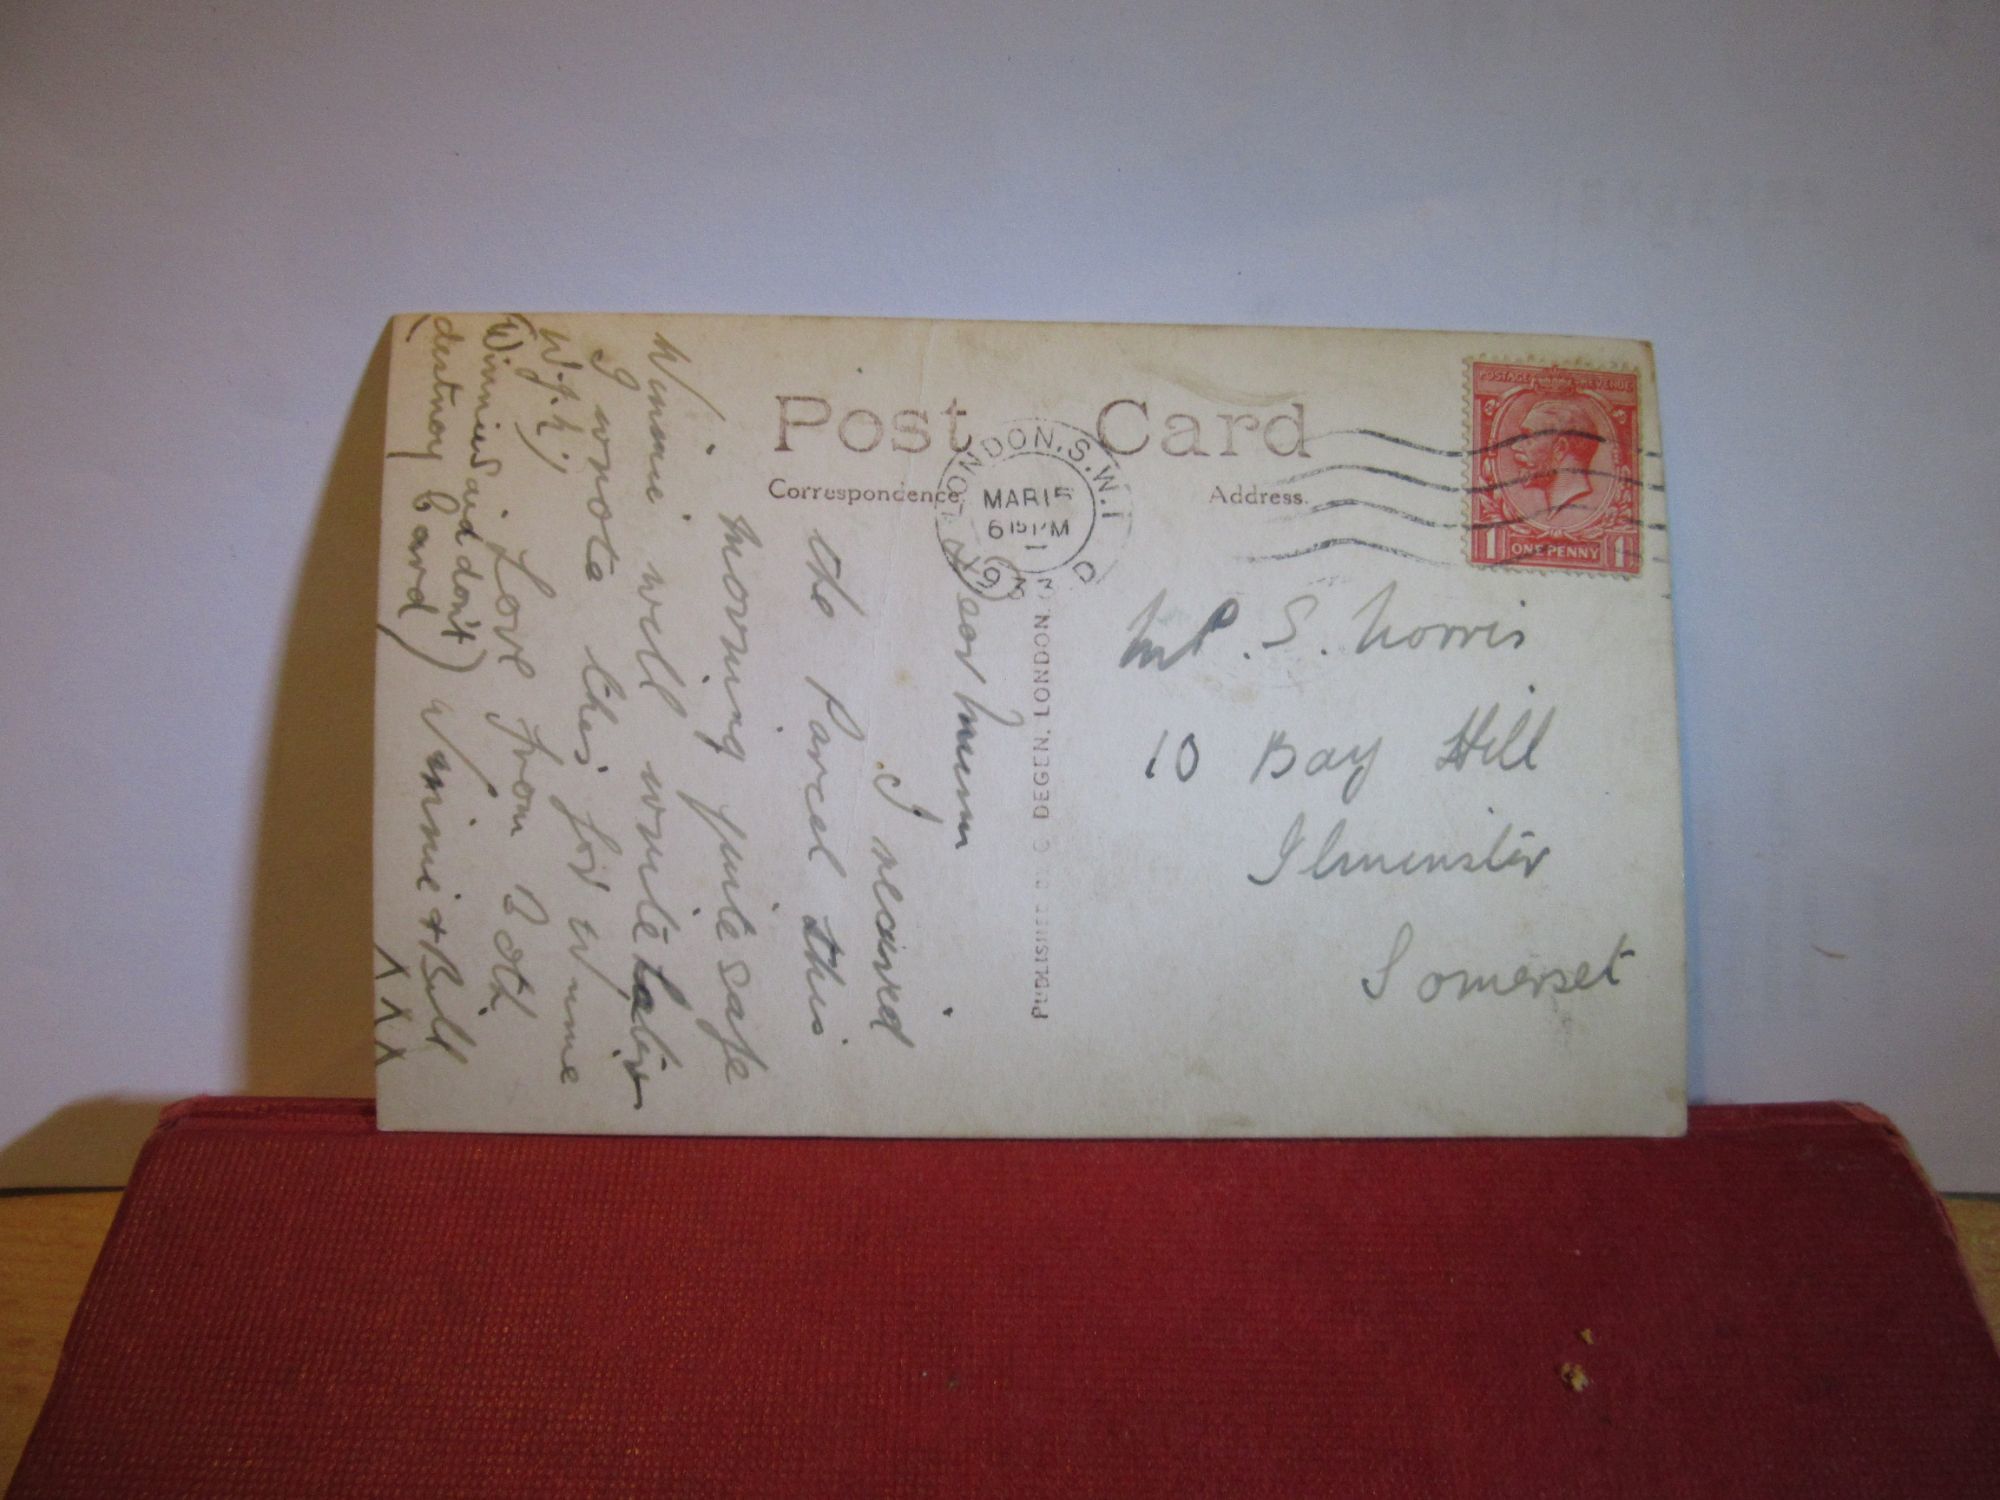 Post Card
Correspondence.
Address.
LONDON. S.W.1
MAR 15
6 15 PM
1933
D
POSTAGE REVENUE
1 ONE PENNY 1
PUBLISHED DEGEN, LONDON.
S. Norris
10 Bay Hill
Ilminster
Somerset
Dear Mum
I received
the Parcel this
morning quite safe
Winnie will write later
I wrote this for Winnie
Love from Both
Winnie + Bill
(Winnie said don't
destroy Card)
X X X